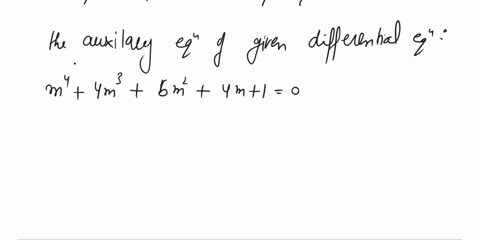 the auxilary eqⁿ of given differential eqⁿ:
m⁴ + 4m³ + 5m² + 4m + 1 = 0